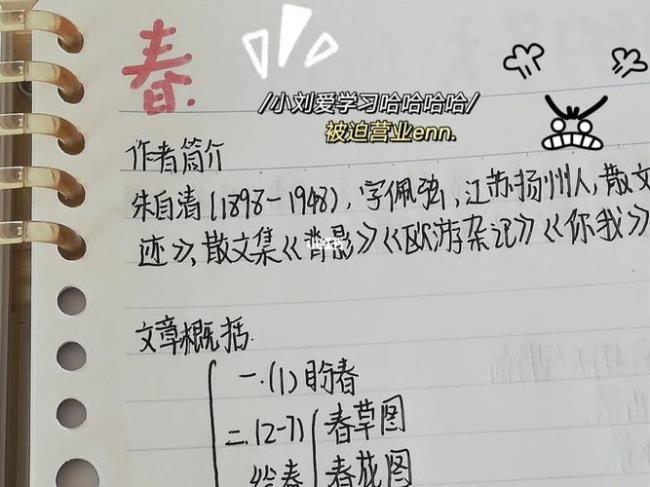 春.
/小刘爱学习哈哈哈哈/
被迫营业enn.
作者简介
朱自清(1898-1948),字佩弦,江苏扬州人,散文
迹》,散文集《背影》《欧游杂记》《你我》
文章概括.
一.(1)盼春
二.(2-7) 春草图
绘春 春花图